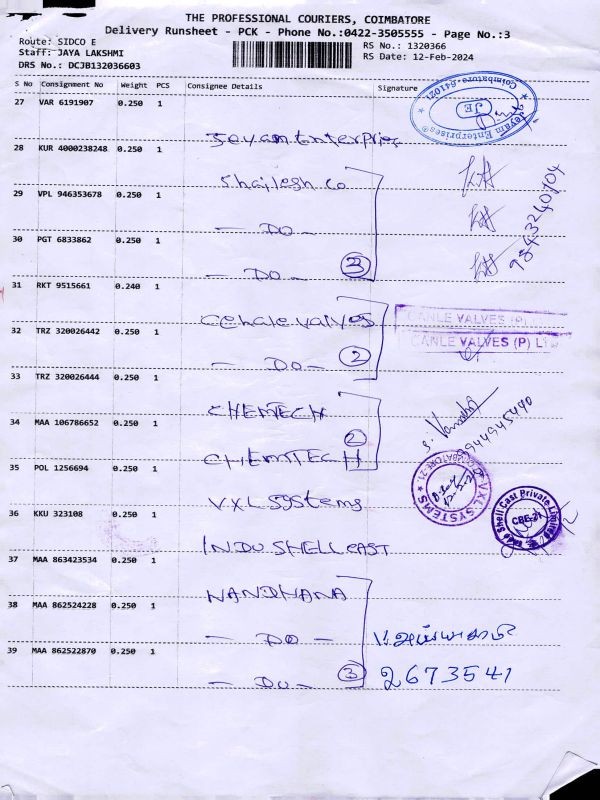 THE PROFESSIONAL COURIERS, COIMBATORE
Delivery Runsheet - PCK - Phone No.:0422-3505555 - Page No.:3
Route: SIDCO E
RS No.: 1320366
Staff: JAYA LAKSHMI
RS Date: 12-Feb-2024
DRS No.: DCJB132036603
S No Consignment No Weight PCS Consignee Details Signature
27 VAR 6191907 0.250 1
Jeyam Enterprise
Jayam Enterprises
Coimbatore-641021
JE
28 KUR 4000238248 0.250 1
Shailesh Co
29 VPL 946353678 0.250 1
- DO -
9843240104
30 PGT 6833862 0.250 1
- DO - 3
31 RKT 9515661 0.240 1
CANLE VALVES (P)
32 TRZ 320026442 0.250 1
- DO - 2
CANLE VALVES (P) LTD
33 TRZ 320026444 0.250 1
CHEMTECH
34 MAA 106786652 0.250 1
CHEMTECH 2
9944945490
35 POL 1256694 0.250 1
VXL Systems
VXL SYSTEMS
COIMBATORE-21
36 KKU 323108 0.250 1
INDU SHELL CAST
Shell Cast Private Limited
CBE-21
37 MAA 863423534 0.250 1
NANDHANA
38 MAA 862524228 0.250 1
- DO -
39 MAA 862522870 0.250 1
- DO - 3
2673541